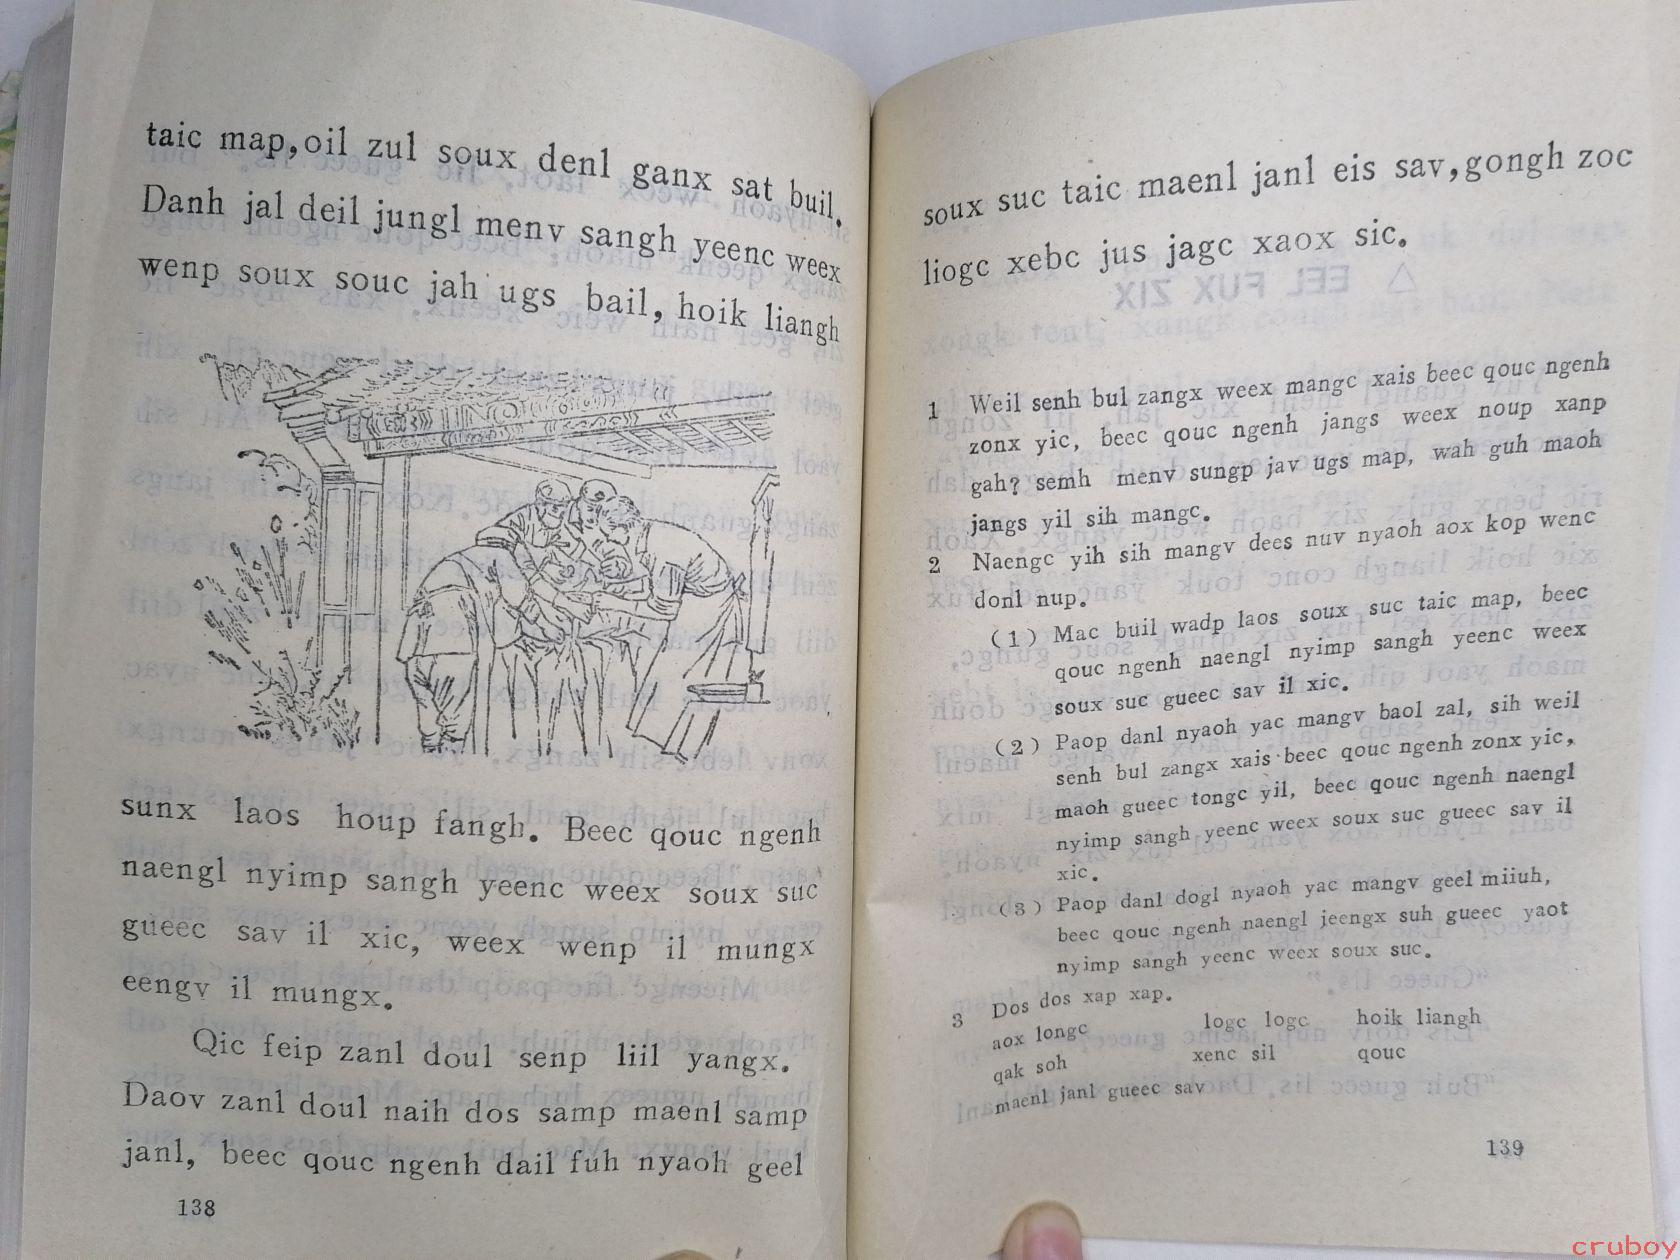 taic map,oil zul soux denl ganx sat buil.
Danh jal deil jungl menv sangh yeenc weex
wenp soux souc jah ugs bail, hoik liangh
sunx laos houp fangh. Beec qouc ngenh
naengl nyimp sangh yeenc weex soux suc
gueec sav il xic, weex wenp il mungx
eengv il mungx.
Qic feip zanl doul senp liil yangx.
Daov zanl doul naih dos samp maenl samp
janl, beec qouc ngenh dail fuh nyaoh geel
138
soux suc taic maenl janl eis sav,gongh zoc
liogc xebc jus jagc xaox sic.
1 Weil senh bul zangx weex mangc xais beec qouc ngenh
zonx yic, beec qouc ngenh jangs weex noup xanp
gah? semh menv sungp jav ugs map, wah guh maoh
jangs yil sih mangc.
2 Naengc yih sih mangv dees nuv nyaoh aox kop wenc
donl nup.
(1) Mac buil wadp laos soux suc taic map, beec
qouc ngenh naengl nyimp sangh yeenc weex
soux suc gueec sav il xic.
(2) Paop danl nyaoh yac mangv baol zal, sih weil
senh bul zangx xais beec qouc ngenh zonx yic,
maoh gueec tongc yil, beec qouc ngenh naengl
nyimp sangh yeenc weex soux suc gueec sav il
xic.
(3) Paop danl dogl nyaoh yac mangv geel miiuh,
beec qouc ngenh naengl jeengx suh gueec yaot
nyimp sangh yeenc weex soux suc.
3 Dos dos xap xap.
aox longc logc logc hoik liangh
qak soh xenc sil qouc
maenl janl gueec sav
139
cruboy